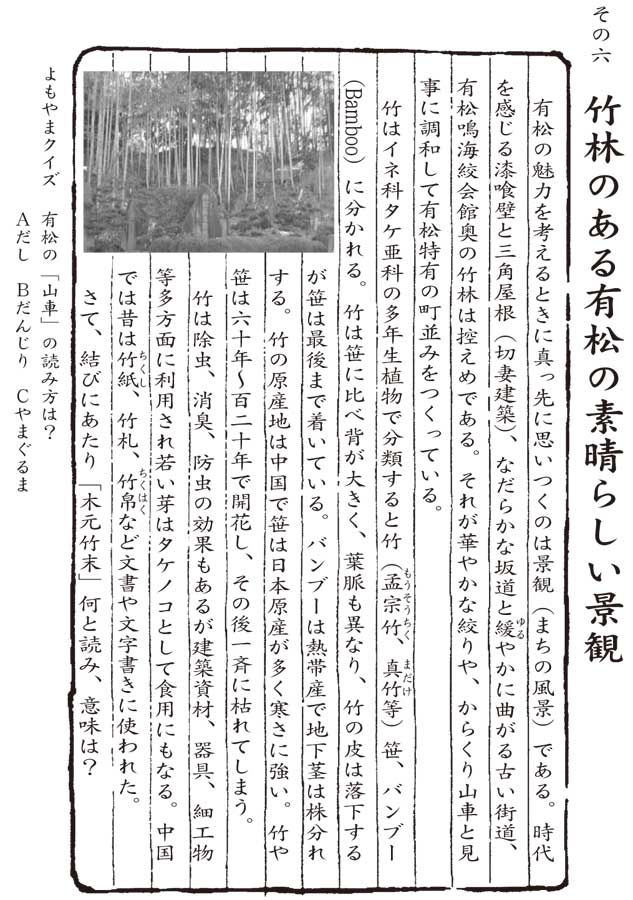 その六
竹林のある有松の素晴らしい景観
有松の魅力を考えるときに真っ先に思いつくのは景観（まちの風景）である。時代
を感じる漆喰壁と三角屋根（切妻建築）、なだらかな坂道と緩やかに曲がる古い街道、
ゆる
有松鳴海絞会館奥の竹林は控えめである。それが華やかな絞りや、からくり山車と見
事に調和して有松特有の町並みをつくっている。
竹はイネ科タケ亜科の多年生植物で分類すると竹（孟宗竹、真竹等）笹、バンブー
もうそうちく
まだけ
（Bamboo）に分かれる。竹は笹に比べ背が大きく、葉脈も異なり、竹の皮は落下する
が笹は最後まで着いている。バンブーは熱帯産で地下茎は株分れ
する。竹の原産地は中国で笹は日本原産が多く寒さに強い。竹や
笹は六十年〜百二十年で開花し、その後一斉に枯れてしまう。
竹は除虫、消臭、防虫の効果もあるが建築資材、器具、細工物
等多方面に利用され若い芽はタケノコとして食用にもなる。中国
では昔は竹紙、竹札、竹帛など文書や文字書きに使われた。
ちくし
ちくはく
さて、結びにあたり「木元竹末」何と読み、意味は？
よもやまクイズ　有松の「山車」の読み方は？
Aだし　Bだんじり　Cやまぐるま